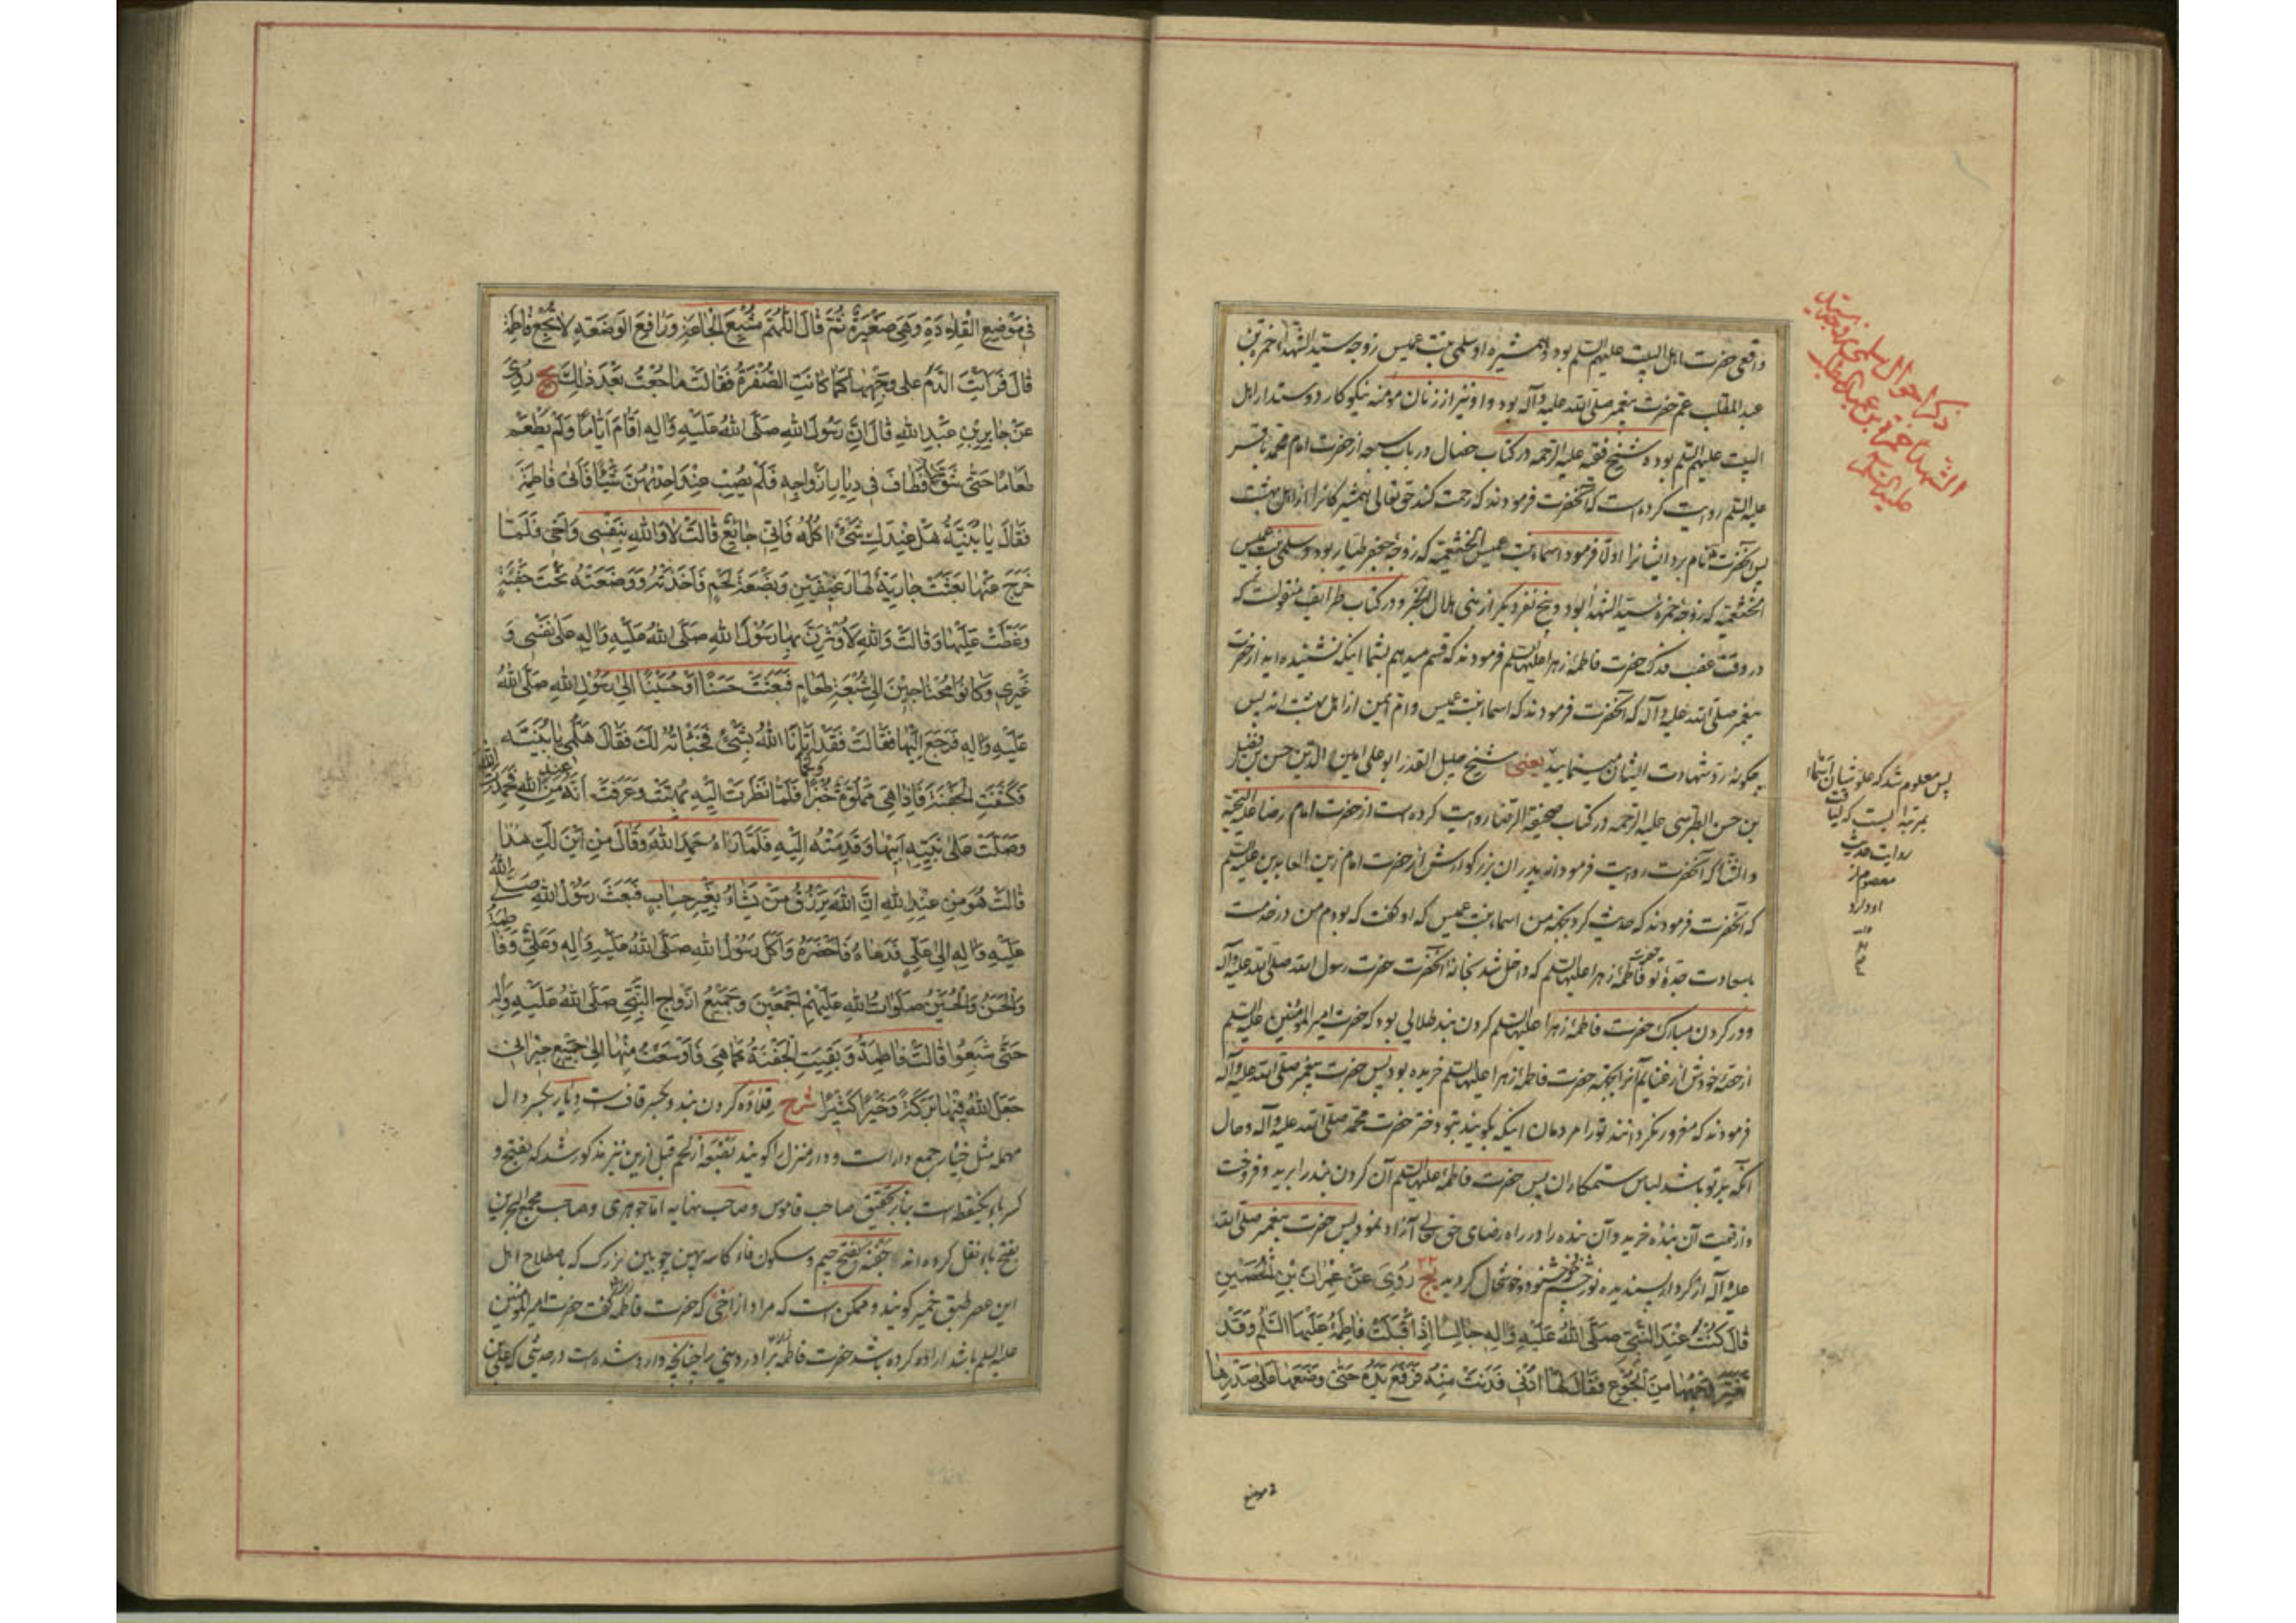 واقعی حضرت اهل البیت علیهم السلم بود و همشیره او سلمی بنت عمیس زوجه سید الشهدا حمزة بن
عبد المطلب عم حضرت پیغمبر صلی الله علیه و آله بود و او نیز از زنان مومنه نیکوکار و دوستدار اهل
البیت علیهم السلم بوده شیخ فقیه علیه الرحمه در کتاب خصال در باب سبعه از حضرت امام محمد باقر
علیه السلم روایت کرده است که آنحضرت فرمودند که رحمت کند حق تعالی همشیرگانرا از اهل بهشت
پس آنحضرت نام برد ایشانرا اولا فرمود اسماء بنت عمیس الخثعمیه که زوجه جعفر طیار بود و سلمی بنت عمیس
الخثعمیه که زوجه حمزه سید الشهدا بود و پنج نفر دیگر از بنی هلال الخ و در کتاب طرایف منقولست که
در وقت غصب فدک حضرت فاطمه زهرا علیها السلم فرمودند که قسم میدهم بشما اینکه نشنیده اید از حضرت
پیغمبر صلی الله علیه و آله که آنحضرت فرمودند که اسماء بنت عمیس و ام ایمن از اهل بهشت اند پس
چگونه رد شهادت ایشان مینمایید یعنی شیخ جلیل القدر ابو علی امین الدین حسن بن فضل
بن حسن الطبرسی علیه الرحمه در کتاب صحیفة الرضا روایت کرده است از حضرت امام رضا علیه التحیة
و الثنا که آنحضرت روایت فرموداند از پدران بزرگوارش از حضرت امام زین العابدین علیه السلم
که آنحضرت فرمودند که حدیث کرد بجهة من اسماء بنت عمیس که او گفت که بودم من در خدمت
باسعادت جدهٔ تو حضرت فاطمهٔ زهرا علیها السلم که داخل شد بخانهٔ آنحضرت حضرت رسول الله صلی الله علیه و آله
و در گردن مبارک حضرت فاطمهٔ زهرا علیها السلم گردن بند طلایی بود که حضرت امیر المومنین علیه السلم
از حصهٔ خودش از غنایم آنرا بجهة حضرت فاطمهٔ زهرا علیها السلم خریده بود پس حضرت پیغمبر صلی الله علیه و آله
فرمودند که مغرور نگردانند تو را مردمان اینکه بگویند بتو دختر حضرت محمد صلی الله علیه و آله و حال
آنکه بر تو باشد لباس ستمکاران پس حضرت فاطمهٔ علیها السلم آن گردن بند را برید و فروخت
و از قیمت آن بندهٔ خرید و آن بنده را در راه رضای حق تعالی آزاد نمود پس حضرت پیغمبر صلی الله
علیه و آله از کردار پسندیده نور چشم خود خوشنود و خوشحال گردید یج رُوِیَ عَنْ عِمْرانَ بْنِ الْحُصَیْنِ
قالَ کُنْتُ عِنْدَ النَّبِیِّ صَلَّی اللهُ عَلَیْهِ وَآلِهِ جالِسًا إِذْ أَقْبَلَتْ فاطِمَةُ عَلَیْهَا السَّلَمُ وَقَدْ
تَغَیَّرَ وَجْهُها مِنَ الْجُوْعِ فَقالَ لَها ادْنِی فَدَنَتْ مِنْهُ فَرَفَعَ یَدَهُ حَتّی وَضَعَها عَلی صَدْرِها
في موضع
ذکر احوال سلمی زوجه سید
الشهدا حمزة بن عبد المطلب
علیه السلم
پس معلوم شد که علو شان اسماء
بمرتبه ایست که لیاقت
روایت حدیث
معصوم از
او دارد
منه
فِی مَوْضِعِ الْقِلادَةِ وَهِیَ صَغِیرَةٌ ثُمَّ قالَ اللَّهُمَّ مُشْبِعَ الْجاعَةِ وَرافِعَ الْوَضْعَةِ لا تُجِعْ فاطِمَةَ
قالَ فَرَأَیْتُ الدَّمَ عَلی وَجْهِها کَما کانَتِ الصُّفْرَةُ فَقالَتْ ما جُعْتُ بَعْدَ ذلِکَ یج رُوِیَ
عَنْ جابِرِ بْنِ عَبْدِ اللهِ قالَ اِنَّ رَسُولَ اللهِ صَلَّی اللهُ عَلَیْهِ وَآلِهِ أَقامَ أَیّامًا وَلَمْ یَطْعَمْ
طَعامًا حَتّی شَقَّ عَلَیْهِ فَطافَ فی دِیارِ أَزْواجِهِ فَلَمْ یُصِبْ عِنْدَ إِحْدیهُنَّ شَیْئًا فَأَتی فاطِمَةَ
فَقالَ یا بُنَیَّةُ هَلْ عِنْدَکِ شَیْءٌ آکُلُهُ فَإِنّی جائِعٌ قالَتْ لا وَاللهِ بِنَفْسی وَأَخی فَلَمّا
خَرَجَ عَنْها بَعَثَتْ جارِیَةٌ لَها رَغِیفَیْنِ وَبَضْعَةَ لَحْمٍ فَأَخَذَتْهُ وَوَضَعَتْهُ تَحْتَ جَفْنَةٍ
وَغَطَّتْ عَلَیْها وَقالَتْ وَاللهِ لَأُوثِرَنَّ بِها رَسُولَ اللهِ صَلَّی اللهُ عَلَیْهِ وَآلِهِ عَلی نَفْسی وَ
غَیْری وَکانُوا مُحْتاجِینَ إِلی شُبْعَةِ طَعامٍ فَبَعَثَتْ حَسَنًا أَوْ حُسَیْنًا إِلی رَسُولِ اللهِ صَلَّی اللهُ
عَلَیْهِ وَآلِهِ فَرَجَعَ إِلَیْها فَقالَتْ فَقَدْ أَتانَا اللهُ بِشَیْءٍ فَخَبَأْتُهُ لَکَ فَقالَ هَلُمِّی یا بُنَیَّةُ
فَکَشَفَتِ الْجَفْنَةَ فَإِذا هِیَ مَمْلُوَّةٌ خُبْزًا وَلَحْمًا فَلَمّا نَظَرَتْ إِلَیْهِ بُهِتَتْ وَعَرَفَتْ أَنَّهُ مِنْ عِنْدِ اللهِ فَحَمِدَتِ اللهَ
وَصَلَّتْ عَلی نَبِیِّهِ أَبِیها وَقَدَّمَتْهُ إِلَیْهِ فَلَمّا رَآهُ حَمِدَ اللهَ وَقالَ مِنْ أَیْنَ لَکِ هذا
قالَتْ هُوَ مِنْ عِنْدِ اللهِ اِنَّ اللهَ یَرْزُقُ مَنْ یَشاءُ بِغَیْرِ حِسابٍ فَبَعَثَ رَسُولُ اللهِ صَلَّی اللهُ
عَلَیْهِ وَآلِهِ إِلی عَلِیٍّ فَدَعاهُ فَأَحْضَرَهُ وَأَکَلَ رَسُولُ اللهِ صَلَّی اللهُ عَلَیْهِ وَآلِهِ وَعَلِیٌّ وَفاطِمَةُ
وَالْحَسَنُ وَالْحُسَیْنُ صَلَواتُ اللهِ عَلَیْهِمْ أَجْمَعِینَ وَجَمِیعُ أَزْواجِ النَّبِیِّ صَلَّی اللهُ عَلَیْهِ وَآلِهِ
حَتّی شَبِعُوا قالَتْ فاطِمَةُ وَبَقِیَتِ الْجَفْنَةُ کَما هِیَ فَأَوْسَعْتُ مِنْها إِلی جَمِیعِ جِیرانی
جَعَلَ اللهُ فِیها بَرَکَةً وَخَیْرًا کَثِیرًا شرح قلاده گردن بند و بکسر قاف است دیار بکسر دال
مهمله مثل خیار جمع دار است و دار منزل را گویند بضعة از لحم قبل ازین نیز مذکور شد که بفتح و
کسر باء یکنقطه است بنابر تحقیق صاحب قاموس و صاحب نهایه اما جوهری و صاحب مجمع البحرین
بفتح باء نقل کرده اند جفنه بفتح جیم و سکون فاء کاسه پهن چوبین بزرگ که باصطلاح اهل
این عصر طبق خمیر گویند و ممکن است که مراد از اخی که حضرت فاطمه گفت حضرت امیر المومنین
علیه السلم باشد اراده کرده باشد حضرت فاطمه برادر دینی را چنانچه وارد شده است در حدیثی که علی بن